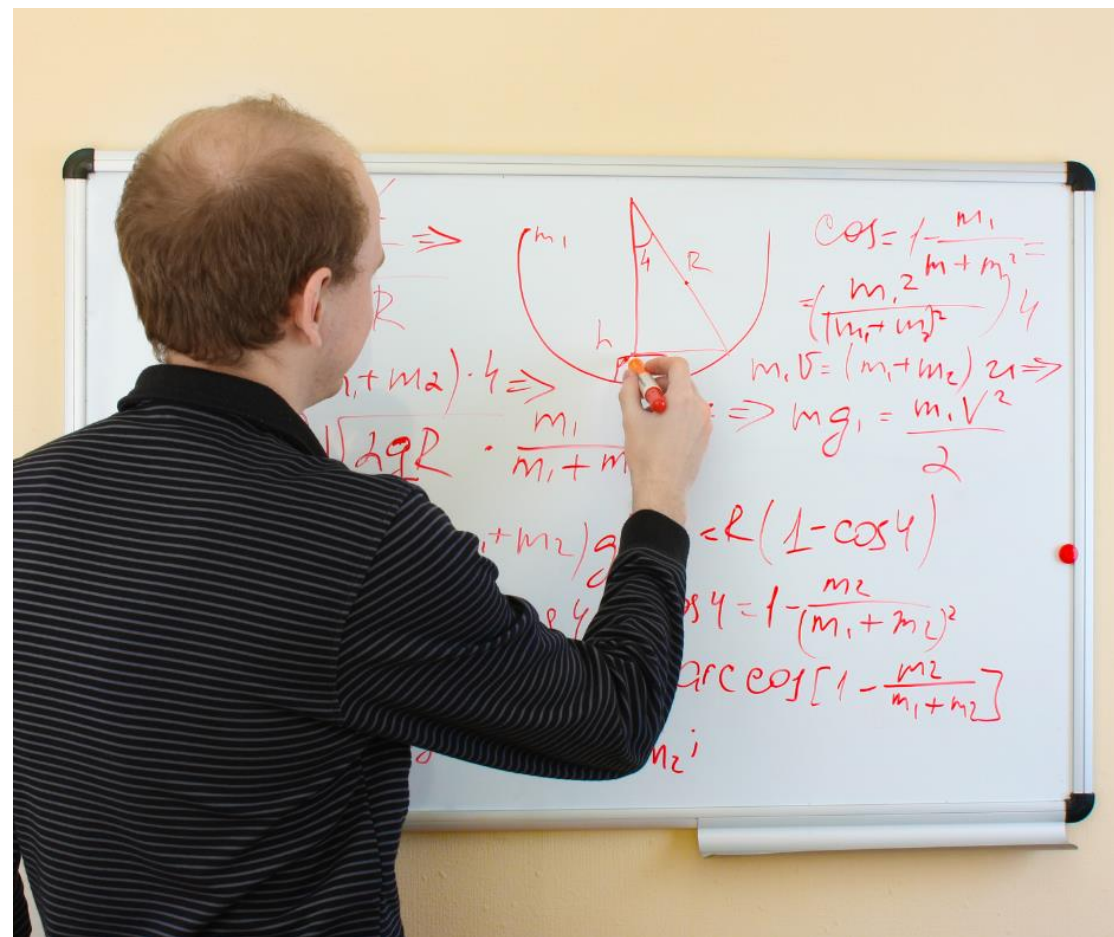 ⇒
R
m₁
4
R
h
cos = 1 - m₁/(m + m₂) =
= (m₁²/(m₁ + m₂)²) 4
+ m₂) · 4 ⇒
m₁v = (m₁ + m₂) u ⇒
√2gR · m₁/(m₁ + m
⇒ mg₁ = m₁V²/2
+ m₂)g
= R(1 - cos4)
os4 = 1 - m₂/(m₁ + m₂)²
arccos[1 - m₂/(m₁ + m₂)]
m₂;